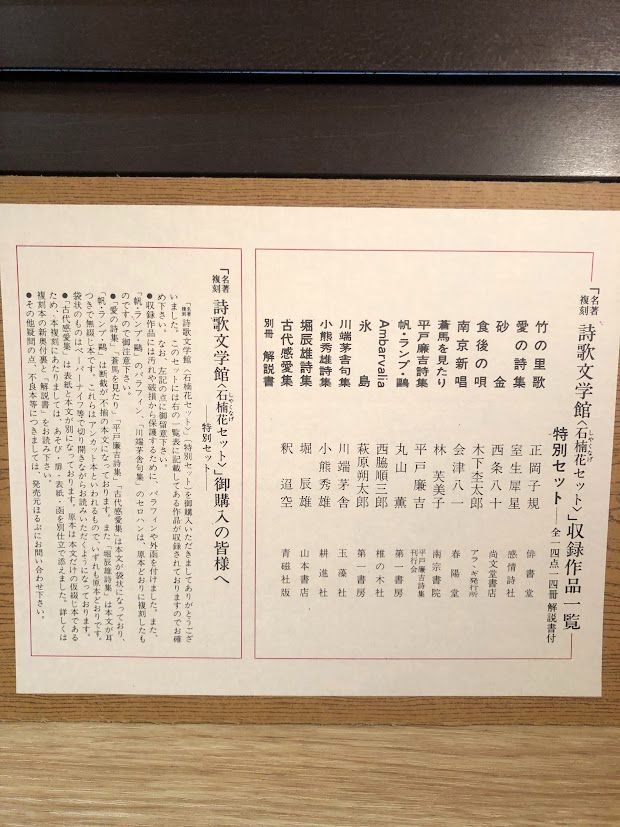 「名著複刻 詩歌文学館〈石楠花セット〉」収録作品一覧
しゃくなげ
特別セット——全一四点・一四冊 解説書付
竹の里歌 正岡子規 俳書堂
愛の詩集 室生犀星 感情詩社
砂金 西条八十 尚文堂書店
食後の唄 木下杢太郎 アララギ発行所
南京新唱 会津八一 春陽堂
蒼馬を見たり 林芙美子 南宋書院
平戸廉吉詩集 平戸廉吉 平戸廉吉詩集刊行会
帆・ランプ・鷗 丸山薫 第一書房
Ambarvalia 西脇順三郎 椎の木社
氷島 萩原朔太郎 第一書房
川端茅舎句集 川端茅舎 玉藻社
小熊秀雄詩集 小熊秀雄 耕進社
堀辰雄詩集 堀辰雄 山本書店
古代感愛集 釈迢空 青磁社版
別冊 解説書
「名著複刻 詩歌文学館〈石楠花セット〉」御購入の皆様へ
しゃくなげ
——特別セット——
「名著複刻 詩歌文学館〈石楠花セット〉」(特別セット)を御購入いただきましてありがとうござ
いました。このセットには右の一覧表に記載してある作品が収録されておりますのでお確
め下さい。なお、左記の点に御留意下さい。
●収録作品には汚れや破損から保護するために、パラフィンや外函を付けました。また、
「帆・ランプ・鷗」のパラフィン、「川端茅舎句集」のセロハンは、原本どおりに複刻したも
のですので御注意下さい。
●「愛の詩集」「蒼馬を見たり」「平戸廉吉詩集」「古代感愛集」は本文が袋状になっており、
「帆・ランプ・鷗」は断裁が不揃の本文になっております。また、「堀辰雄詩集」は本文が耳
つきで無綴じ本です。これらはアンカット本といわれるもので、いずれも原本どおりです。
袋状のものはペーパーナイフ等で切り開きながらお読みいただくようになっております。
●「古代感愛集」は表紙と本文が別になっております。原本は本文だけの仮綴じ本である
ため、本複刻にあたりましては、あそび・扉・表紙・函を別仕立で添えました。詳しくは
複刻本の新奥付裏と「解説書」をお読み下さい。
●その他疑問の点、不良本等につきましては、発売元ほるぷにお問い合わせ下さい。